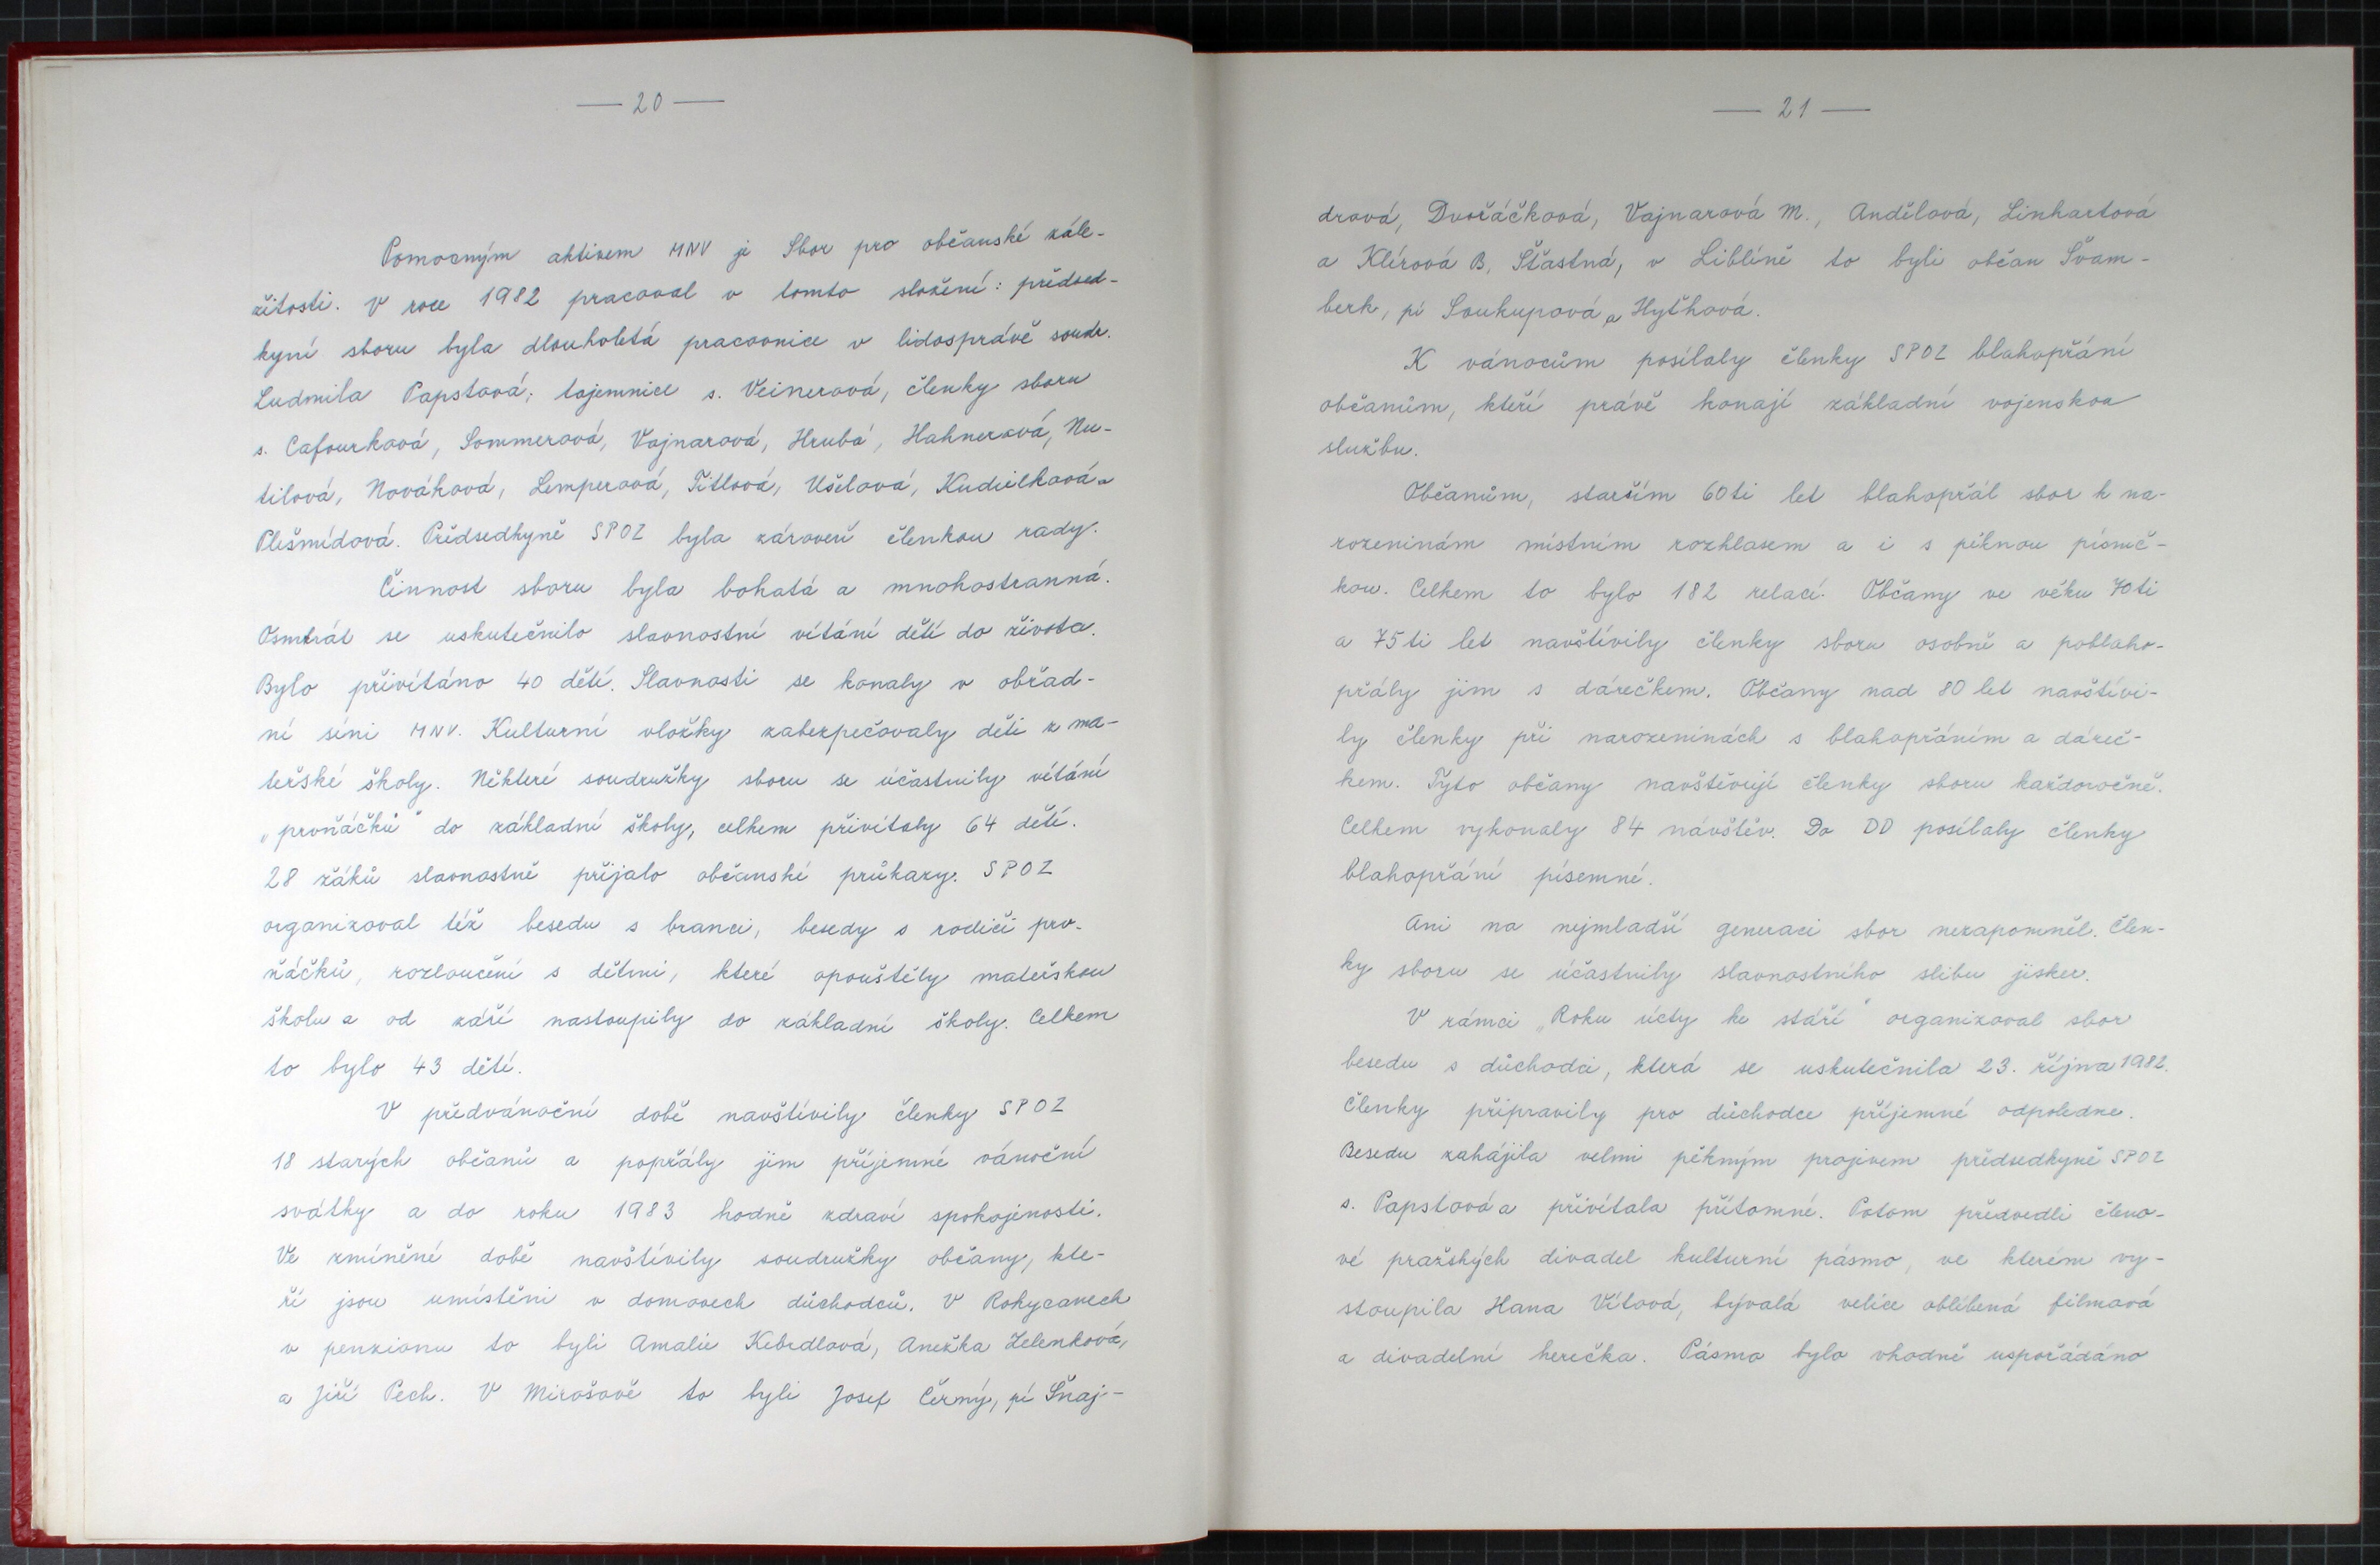 — 20 —
Pomocným aktivem MNV je Sbor pro občanské zále-
žitosti. V roce 1982 pracoval v tomto složení: předsed-
kyní sboru byla dlouholetá pracovnice v lidosprávě soudr.
Ludmila Papstová, tajemnice s. Veinerová, členky sboru
s. Cafourková, Sommerová, Vajnarová, Hrubá, Hahnerová, Nu-
tilová, Nováková, Lemperová, Titlová, Ušelová, Kudielková a
Plešmídová. Předsedkyně SPOZ byla zároveň členkou rady.
Činnost sboru byla bohatá a mnohostranná.
Osmkrát se uskutečnilo slavnostní vítání dětí do života.
Bylo přivítáno 40 dětí. Slavnosti se konaly v obřad-
ní síni MNV. Kulturní vložky zabezpečovaly děti z ma-
teřské školy. Některé soudružky sboru se účastnily vítání
„prvňáčků" do základní školy, celkem přivítaly 64 dětí.
28 žáků slavnostně přijalo občanské průkazy. SPOZ
organizoval též besedu s branci, besedy s rodiči prv-
ňáčků, rozloučení s dětmi, které opouštěly mateřskou
školu a od září nastoupily do základní školy. Celkem
to bylo 43 dětí.
V předvánoční době navštívily členky SPOZ
18 starých občanů a popřály jim příjemné vánoční
svátky a do roku 1983 hodně zdraví spokojenosti.
Ve zmíněné době navštívily soudružky občany, kte-
ří jsou umístěni v domovech důchodců. V Rokycanech
v penzionu to byli Amalie Kebrdlová, Anežka Zelenková,
a Jiří Pech. V Mirošově to byli Josef Černý, pí Šnaj-
— 21 —
drová, Dvořáčková, Vajnarová M., Andělová, Linhartová
a Klírová B, Šťastná, v Liblíně to byli občan Švam-
berk, pí Soukupová a Hyťhová.
K vánocům posílaly členky SPOZ blahopřání
občanům, kteří právě konají základní vojenskou
službu.
Občanům, starším 60ti let blahopřál sbor k na-
rozeninám místním rozhlasem a i s pěknou písnič-
kou. Celkem to bylo 182 relací. Občany ve věku 70ti
a 75ti let navštívily členky sboru osobně a poblaho-
přály jim s dárečkem. Občany nad 80 let navštívi-
ly členky při narozeninách s blahopřáním a dáreč-
kem. Tyto občany navštěvují členky sboru každoročně.
Celkem vykonaly 84 návštěv. Do DD posílaly členky
blahopřání písemné.
Ani na nejmladší generaci sbor nezapomněl. Člen-
ky sboru se účastnily slavnostního slibu jisker.
V rámci „Roku úcty ke stáří" organizoval sbor
besedu s důchodci, která se uskutečnila 23. října 1982.
Členky připravily pro důchodce příjemné odpoledne.
Besedu zahájila velmi pěkným projevem předsedkyně SPOZ
s. Papstová a přivítala přítomné. Potom předvedli členo-
vé pražských divadel kulturní pásmo, ve kterém vy-
stoupila Hana Vítová, bývalá velice oblíbená filmová
a divadelní herečka. Pásmo bylo vhodně uspořádáno